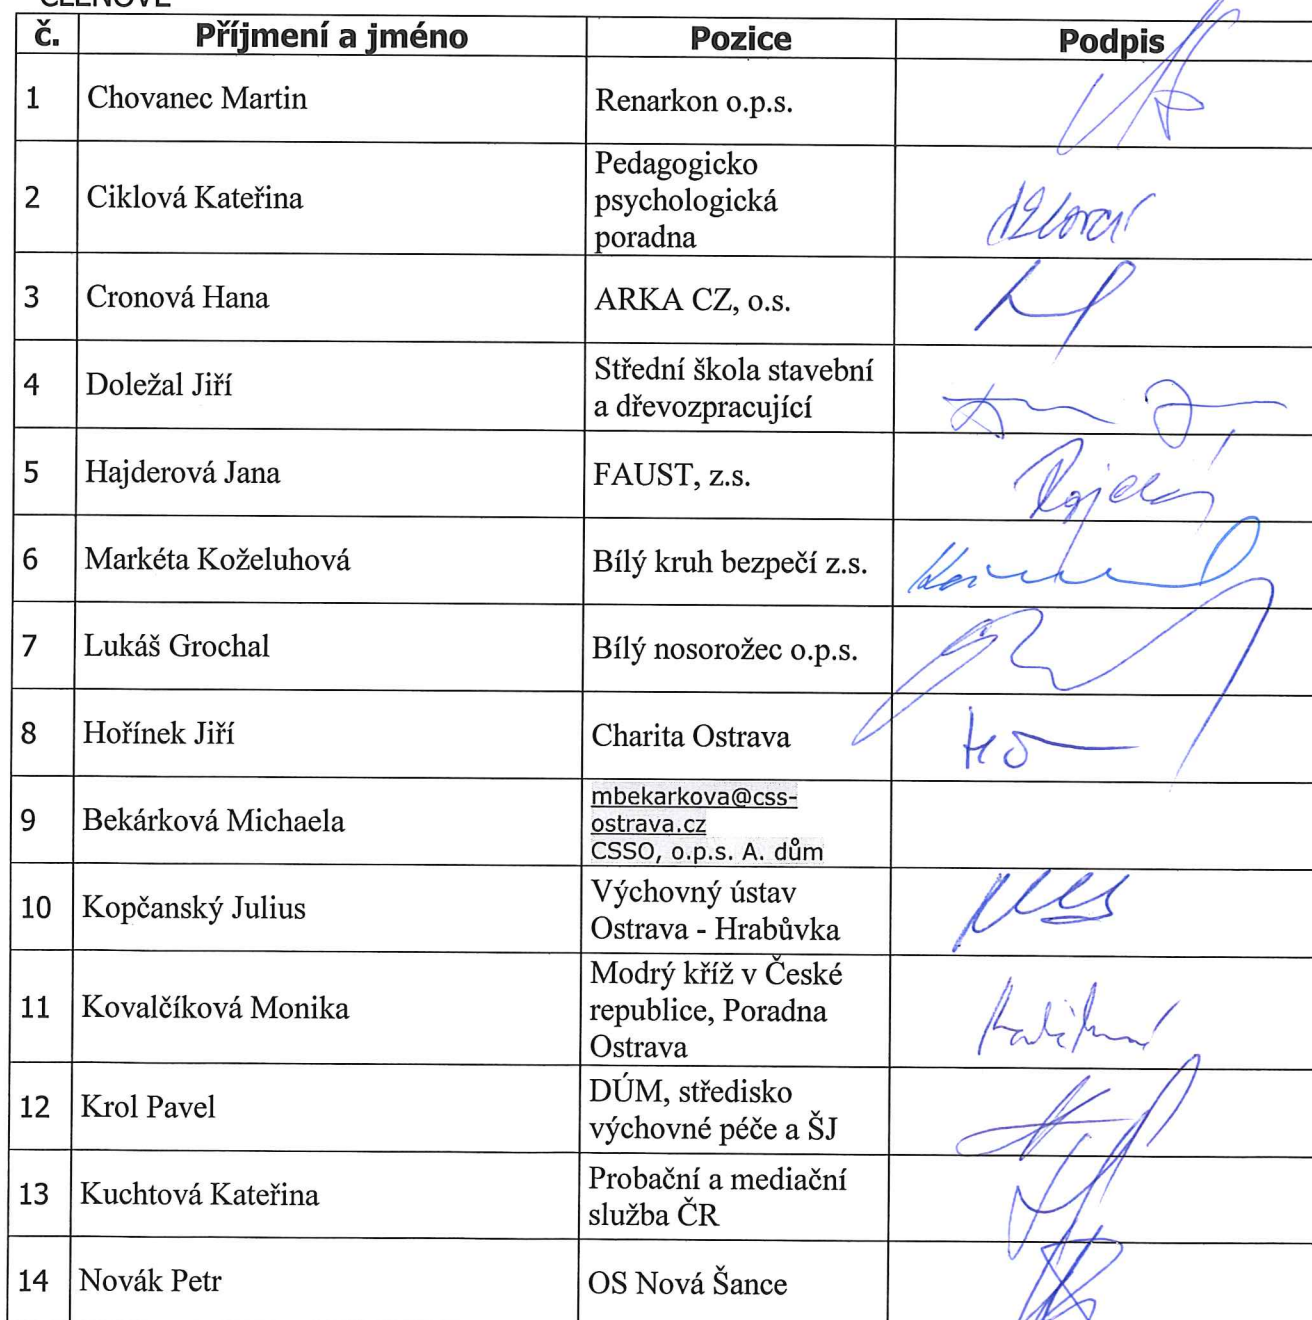 ČLENOVÉ
č. Příjmení a jméno Pozice Podpis
1 Chovanec Martin Renarkon o.p.s.
2 Ciklová Kateřina Pedagogicko
psychologická
poradna
3 Cronová Hana ARKA CZ, o.s.
4 Doležal Jiří Střední škola stavební
a dřevozpracující
5 Hajderová Jana FAUST, z.s.
6 Markéta Koželuhová Bílý kruh bezpečí z.s.
7 Lukáš Grochal Bílý nosorožec o.p.s.
8 Hořínek Jiří Charita Ostrava
9 Bekárková Michaela mbekarkova@css-
ostrava.cz
CSSO, o.p.s. A. dům
10 Kopčanský Julius Výchovný ústav
Ostrava - Hrabůvka
11 Kovalčíková Monika Modrý kříž v České
republice, Poradna
Ostrava
12 Krol Pavel DÚM, středisko
výchovné péče a ŠJ
13 Kuchtová Kateřina Probační a mediační
služba ČR
14 Novák Petr OS Nová Šance